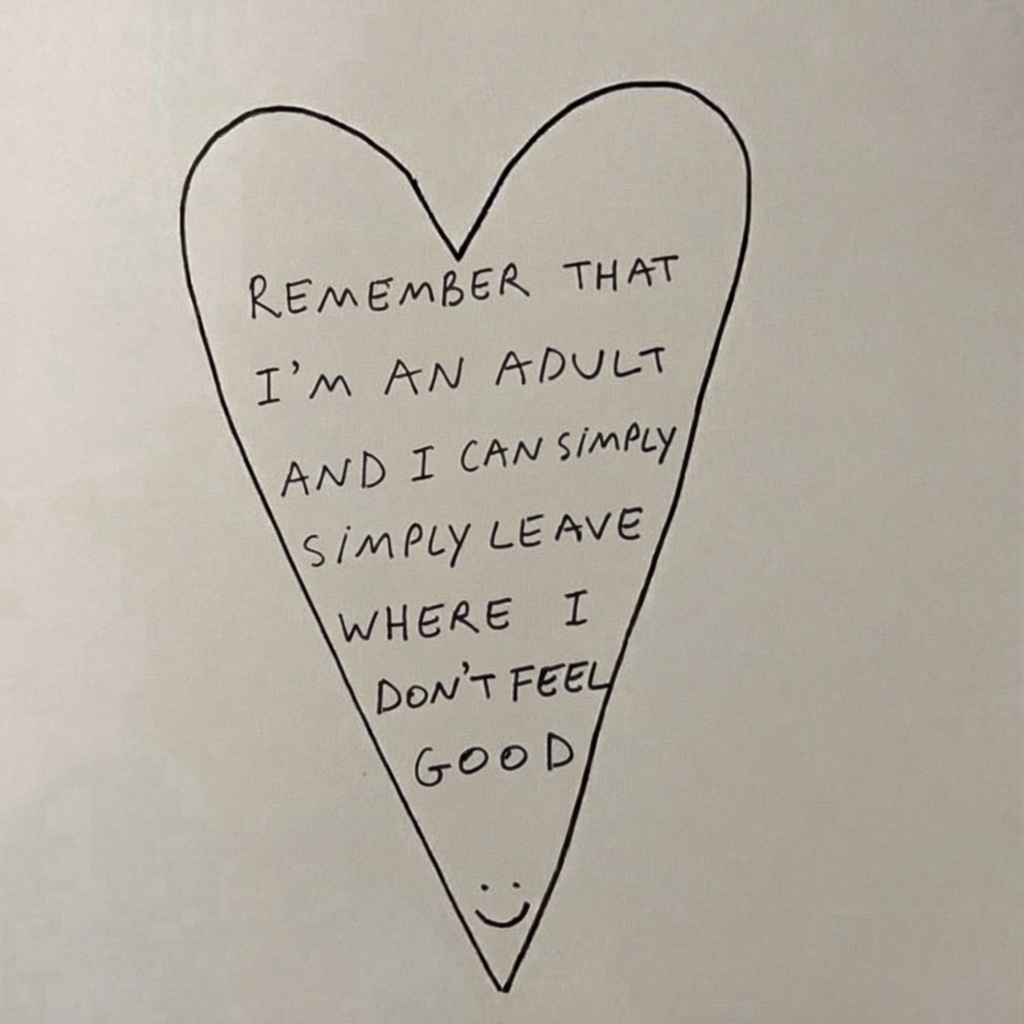 REMEMBER THAT
I'M AN ADULT
AND I CAN SiMPLY
SiMPLY LEAVE
WHERE I
DON'T FEEL
GOOD